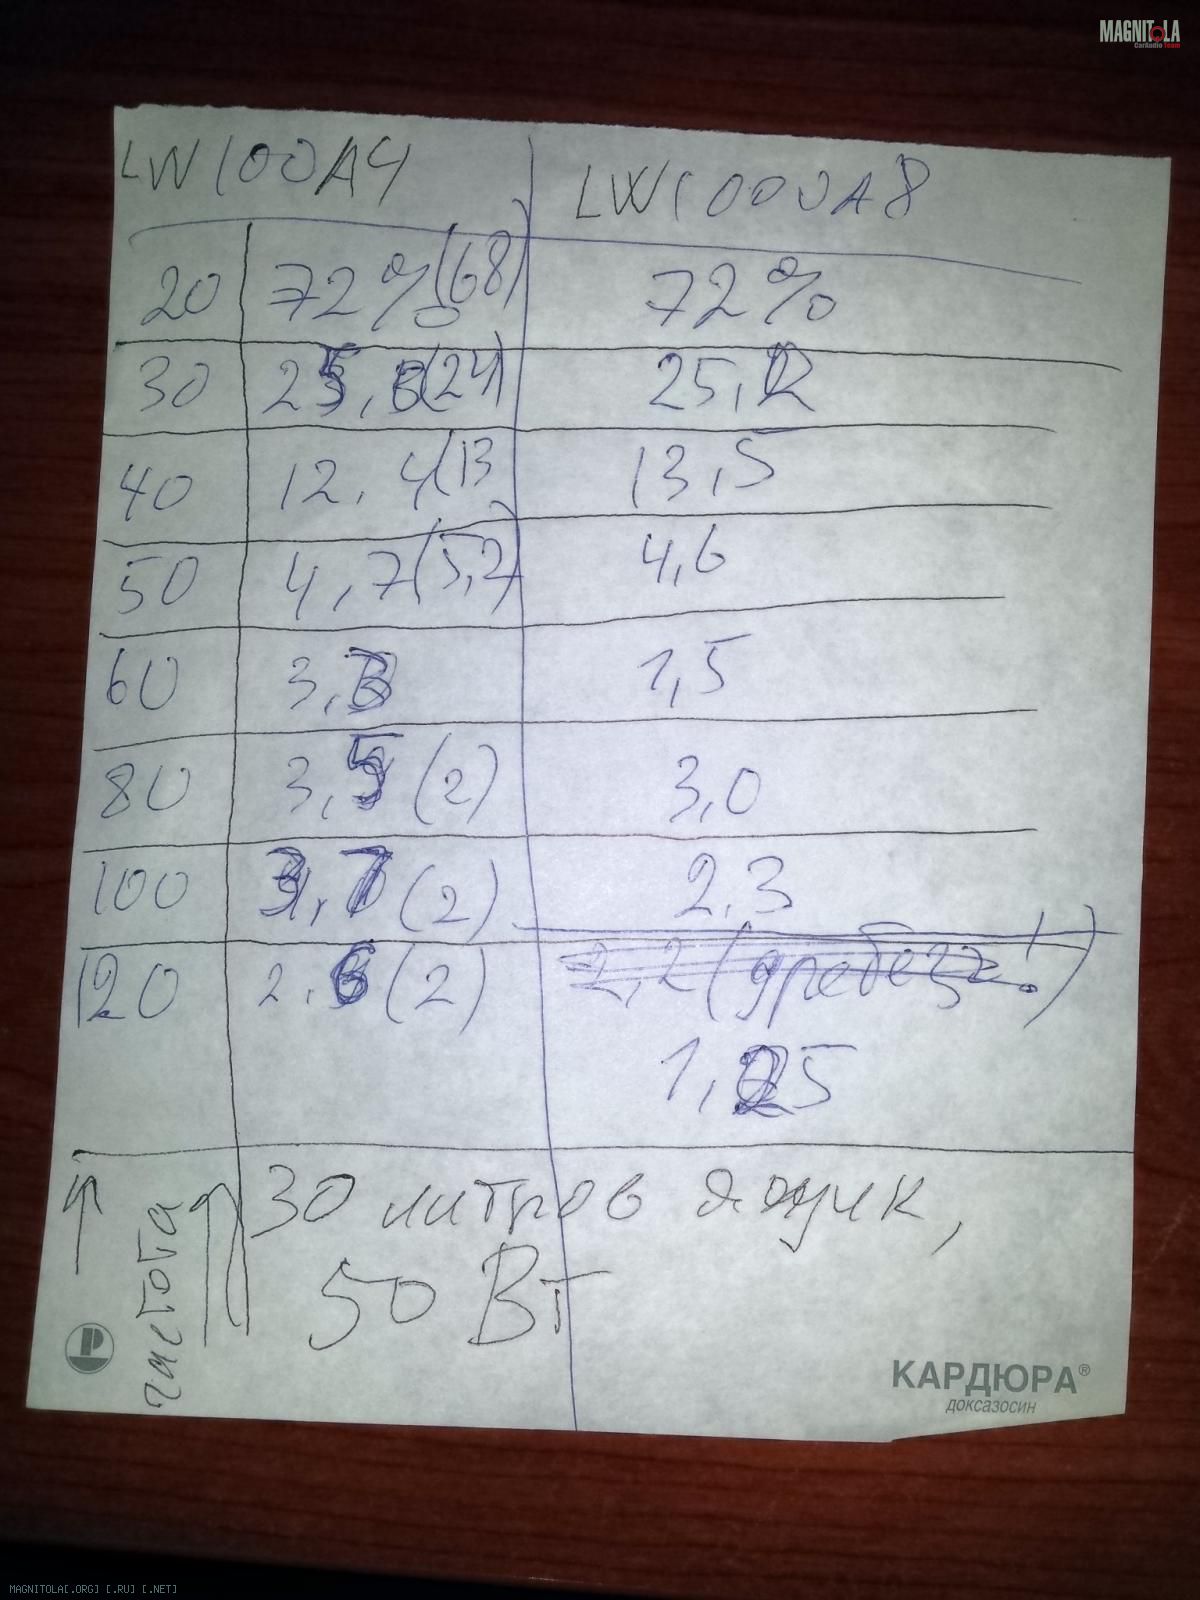 MAGNITOLA
CarAudio Team
LW100A4 LW1000A8
20 72%(68) 72%
30 25, (24) 25,2
40 12,4(13 13,5
50 4,7(5,2) 4,6
60 3,3 1,5
80 3,5 (2) 3,0
100 3,7 (2) 2,3
120 2.6 (2) 2,2 (дребезг!)
1,25
частота
30 литров ящик,
50 Вт
P
КАРДЮРА®
доксазосин
MAGNITOLA[.ORG] [.RU] [.NET]